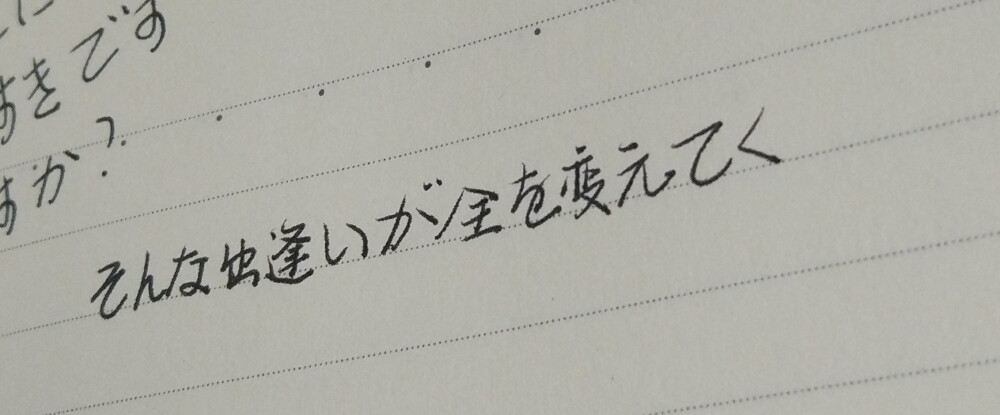 きです
すか?
そんな出逢いが全を変えてく